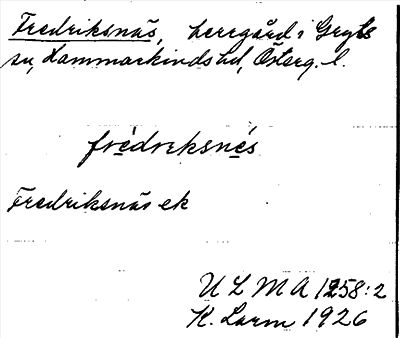 Fredriksnäs, herrgård i Gryts
sn, Hammarkinds hd, Österg. l.
frédrıksnés
Fredriksnäs ek
ULMA 1258:2
K. Larm 1926